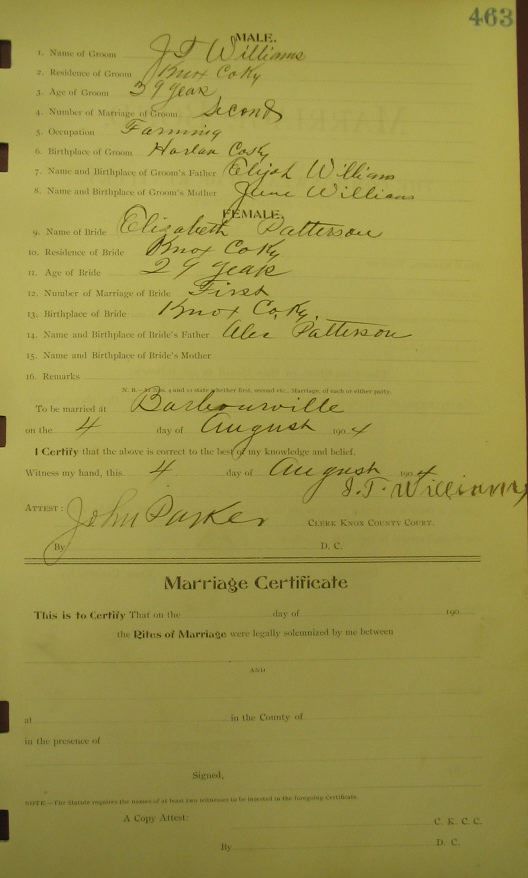 463
MALE.
1. Name of Groom J T Williams
2. Residence of Groom Knox Co Ky
3. Age of Groom 39 years
4. Number of Marriage of Groom Second
5. Occupation Farming
6. Birthplace of Groom Harlan Co Ky
7. Name and Birthplace of Groom's Father Elijah Williams
8. Name and Birthplace of Groom's Mother Jane Williams
FEMALE.
9. Name of Bride Elizabeth Patterson
10. Residence of Bride Knox Co Ky
11. Age of Bride 29 years
12. Number of Marriage of Bride First
13. Birthplace of Bride Knox Co. Ky.
14. Name and Birthplace of Bride's Father Alex Patterson
15. Name and Birthplace of Bride's Mother
16. Remarks
N. B.—At Nos. 4 and 12 state whether first, second etc., Marriage, of each or either party.
To be married at Barbourville
on the 4 day of August 1904
I Certify that the above is correct to the best of my knowledge and belief.
Witness my hand, this 4 day of August 1904
J. T. Williams
ATTEST: John Parker CLERK KNOX COUNTY COURT.
By D. C.
Marriage Certificate
This is to Certify That on the day of 190
the Rites of Marriage were legally solemnized by me between
AND
at in the County of
in the presence of
Signed,
NOTE.—The Statute requires the names of at least two witnesses to be inserted in the foregoing Certificate.
A Copy Attest: C. K. C. C.
By D. C.